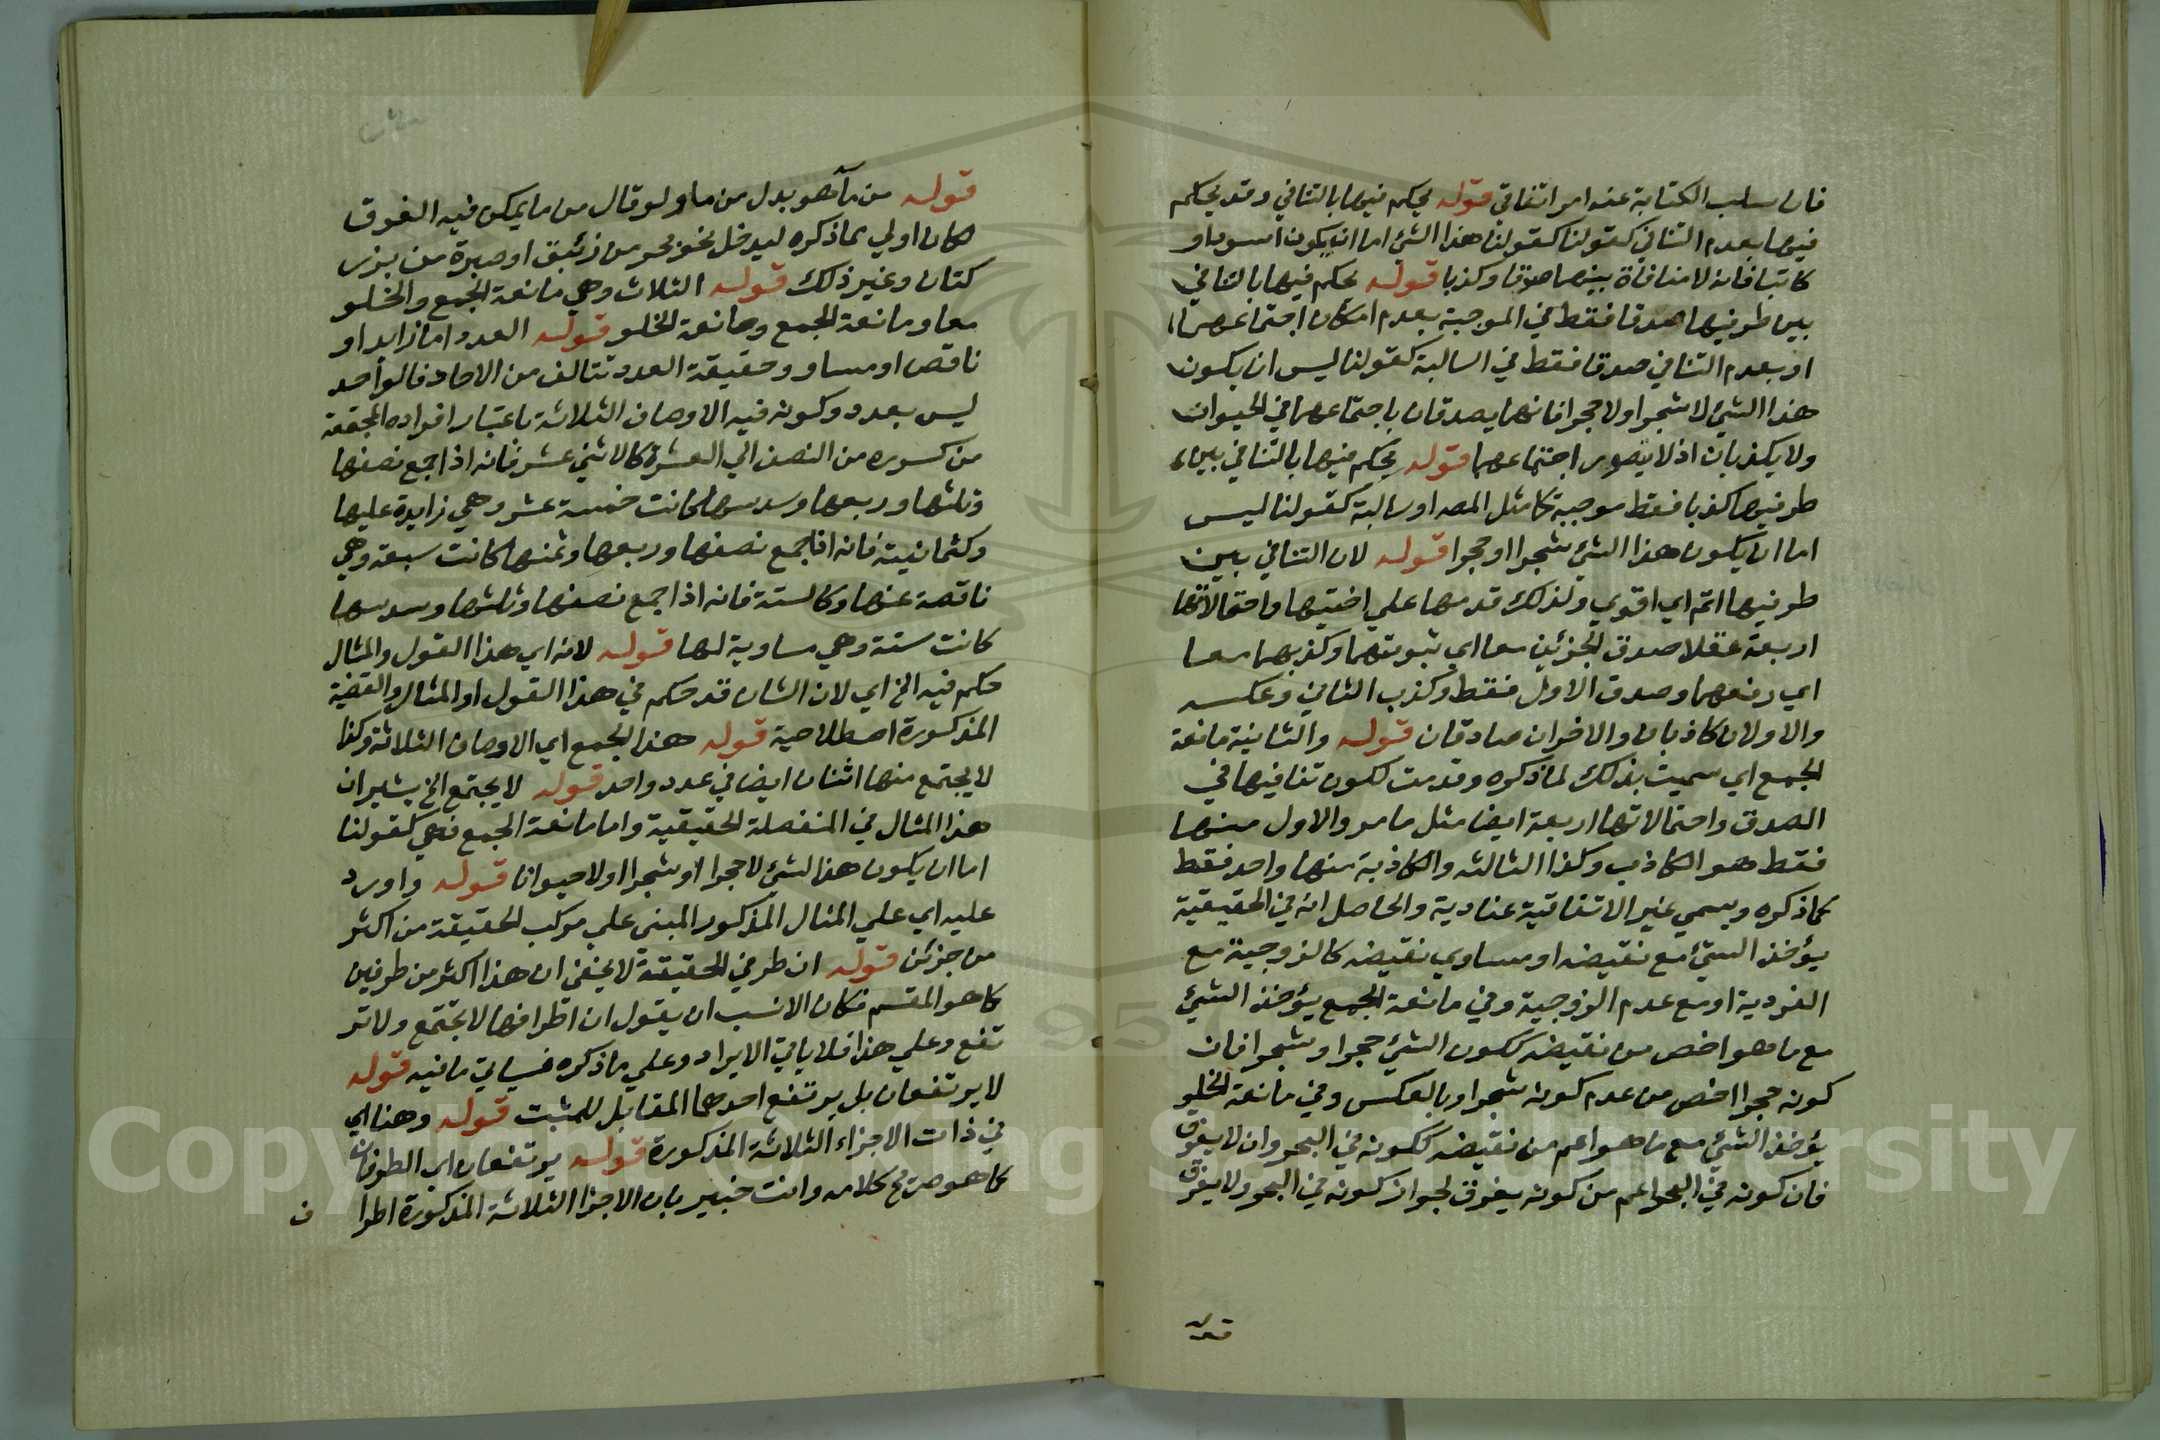 فان سلب الكتابة عنه امر اتفاقي قوله يحكم فيها بالتنافي وقد يحكم
فيها بعدم التنافي كقولنا كقولنا هذا الشئ اما ان يكون اسود او
كاتبا فانه لا منافاة بينهما صدقا وكذبا قوله يحكم فيها بالتنافي
بين طرفيها صدقا فقط في الموجبة بعدم امكان اجتماعهما
او بعدم التنافي صدقا فقط في السالبة كقولنا ليس ان يكون
هذا الشئ لا شجرا ولا حجرا فانهما يصدقان باجتماعهما في الحيوان
ولا يكذبان اذ لا يتصور اجتماعهما قوله يحكم فيها بالتنافي بين
طرفيها كذبا فقط موجبة كامثل المص او سالبة كقولنا ليس
اما ان يكون هذا الشئ شجرا او حجرا قوله لان التنافي بين
طرفيها اتم اي اقوي ولذلك قدمها علي اختيها واحتمالاتها
اربعة عقلا صدق الجزئين معا اي ثبوتهما وكذبهما معا
اي رفعهما وصدق الاول فقط وكذب الثاني وعكسه
والاولان كاذبان والاخران صادقان قوله والثانية مانعة
الجمع اي سميت بذلك لما ذكره وقدمت لكون تنافيها في
الصدق واحتمالاتها اربعة ايضا مثل ما مر والاول منها
فقط هو الكاذب وكذا الثالثه والكاذبة منها واحد فقط
كما ذكره ويسمي غير الاتفاقية عنادية والحاصل انه في الحقيقية
يؤخذ الشئ مع نقيضه او مساوي نقيضه كالزوجية مع
الفردية او مع عدم الزوجية وفي مانعة الجمع يؤخذ الشئ
مع ما هو اخص من نقيضه ككون الشئ حجرا وشجرا فان
كونه حجرا اخص من عدم كونه شجرا وبالعكس وفي مانعة الخلو
يؤخذ الشئ مع ما هو اعم من نقيضه ككونه في البحر وان لا يغرق
فان كونه في البحر اعم من كونه يغرق لجواز كونه في البحر ولا يغرق
قوله
قوله من ماء هو بدل من ما ولو قال من ما يمكن فيه الغرق
لكان اولي مما ذكره ليدخل نحو بحر من زئبق او صبرة من بزر
كتان وغير ذلك قوله الثلاث وهي مانعة الجمع والخلو
معا ومانعة الجمع ومانعة الخلو قوله العدد اما زايد او
ناقص او مساو وحقيقة العدد تتالف من الاحاد فالواحد
ليس بعدد وكونه فيه الاوصاف الثلاثة باعتبار افراده المجتمعة
من كسوره من النصف الي العشرة كالاثني عشر فانه اذا جمع نصفها
وثلثها وربعها وسدسها لكانت خمسة عشر وهي زايدة عليها
وكثمانية فانه اذا جمع نصفها وربعها وثمنها كانت سبعة وهي
ناقصة عنها وكالستة فانه اذا جمع نصفها وثلثها وسدسها
كانت ستة وهي مساوية لها قوله لانه اي هذا القول والمثال
حكم فيه الخ اي لان الشان قد حكم في هذا القول او المثال والقضية
المذكورة اصطلاحية قوله هذا الجمع اي الاوصاف الثلاثة وكذا
لا يجتمع منها اثنان ايضا في عدد واحد قوله لا يجتمع الخ يشير ان
هذا المثال في المنفصلة الحقيقية واما مانعة الجمع فهي كقولنا
اما ان يكون هذا الشئ لا حجرا او شجرا او لا حيوانا قوله واورد
عليه اي علي المثال المذكور المبني علي مركب الحقيقة من اكثر
من جزئن قوله ان طرفي الحقيقة لا يخفي ان هذا اكثر من طرفين
كما هو المقسم فكان الانسب ان يقول ان اطرافها لا تجتمع ولا تر
تفع وعلي هذا فلا ياتي الايراد وعلي ما ذكره فسياتي ما فيه قوله
لا يرتفعان بل يرتفع احدهما المقابل للمثبت قوله وهنا اي
في ذات الاجزاء الثلاثة المذكورة قوله يرتفعان اي الطرفان
كما هو صريح كلامه وانت خبير بان الاجزا الثلاثة المذكورة اطرا
ف
Copyright © King Saud University